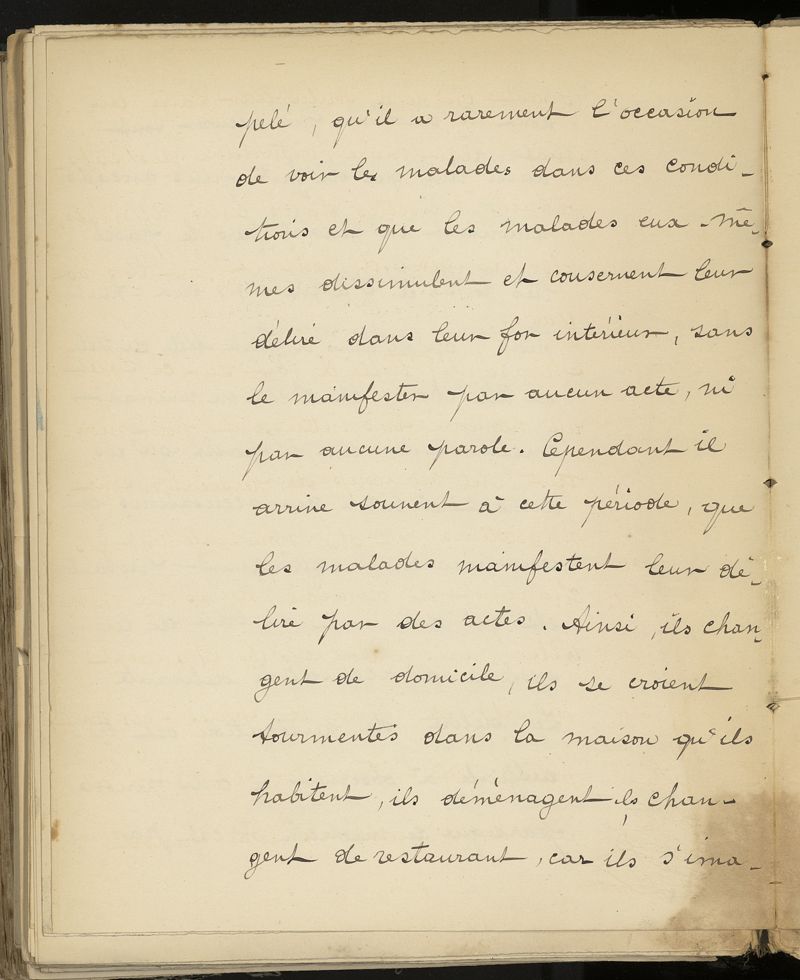 pelé, qu'il a rarement l'occasion
de voir les malades dans ces condi-
tions et que les malades eux-mê-
mes dissimulent et conservent leur
délire dans leur for intérieur, sans
le manifester par aucun acte, ni
par aucune parole. Cependant il
arrive souvent à cette période, que
les malades manifestent leur dé-
lire par des actes. Ainsi, ils chan-
gent de domicile, ils se croient
tourmentés dans la maison qu'ils
habitent, ils déménagent, ils chan-
gent de restaurant, car ils s'ima-